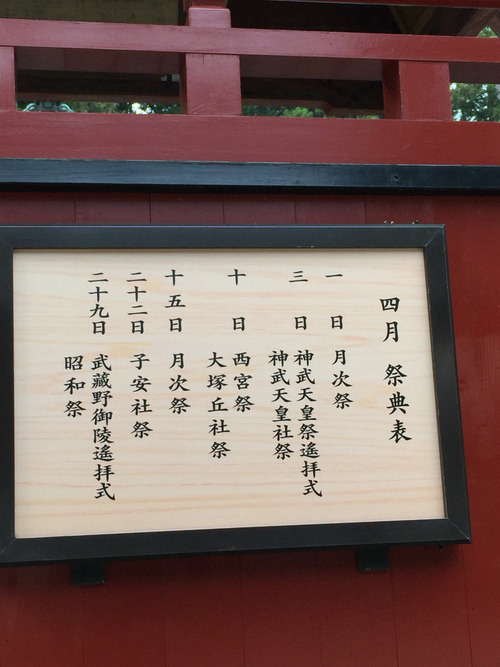 四月 祭典表
一日 月次祭
三日 神武天皇祭遙拝式
神武天皇社祭
十日 西宮祭
大塚丘社祭
十五日 月次祭
二十二日 子安社祭
二十九日 武蔵野御陵遙拝式
昭和祭